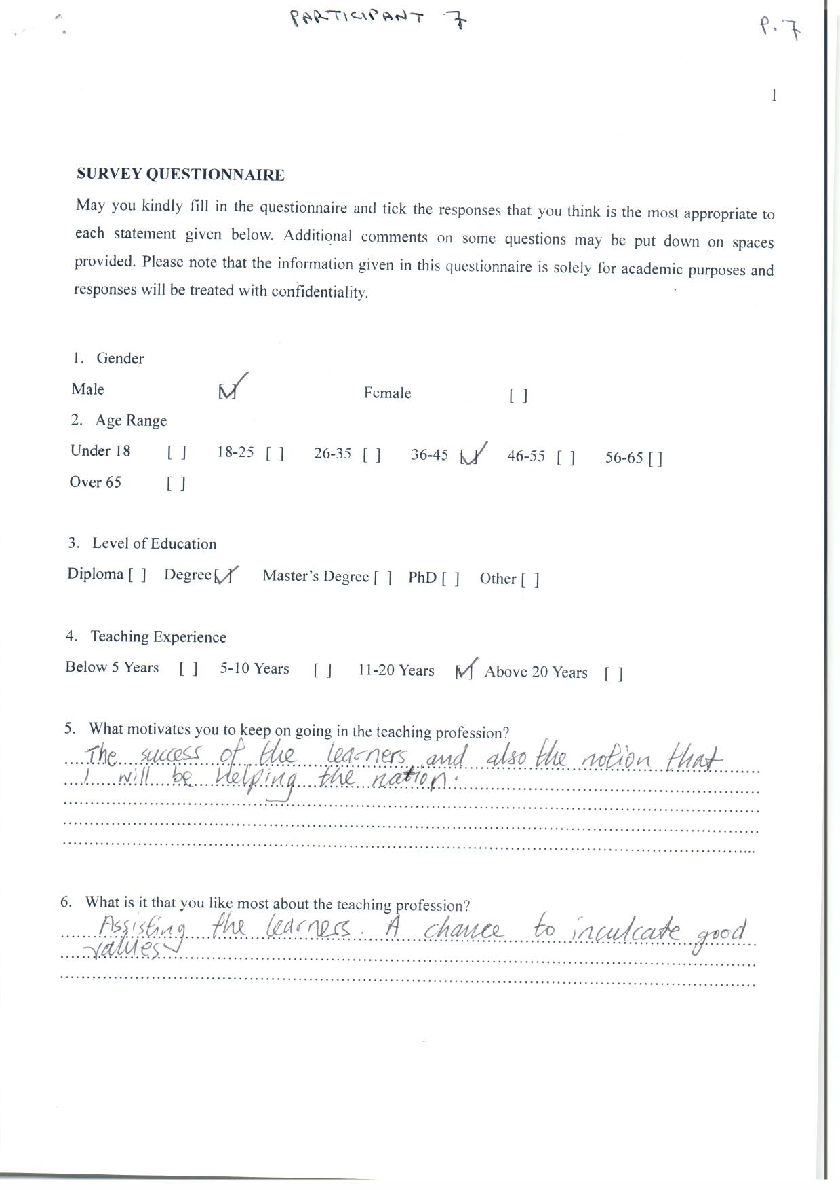 PARTICIPANT 7
P.7
1
SURVEY QUESTIONNAIRE
May you kindly fill in the questionnaire and tick the responses that you think is the most appropriate to
each statement given below. Additional comments on some questions may be put down on spaces
provided. Please note that the information given in this questionnaire is solely for academic purposes and
responses will be treated with confidentiality.
1. Gender
Male [✓] Female [ ]
2. Age Range
Under 18 [ ] 18-25 [ ] 26-35 [ ] 36-45 [✓] 46-55 [ ] 56-65 [ ]
Over 65 [ ]
3. Level of Education
Diploma [ ] Degree [✓] Master's Degree [ ] PhD [ ] Other [ ]
4. Teaching Experience
Below 5 Years [ ] 5-10 Years [ ] 11-20 Years [✓] Above 20 Years [ ]
5. What motivates you to keep on going in the teaching profession?
The success of the learners and also the notion that
I will be helping the nation.
6. What is it that you like most about the teaching profession?
Assisting the learners. A chance to inculcate good
values